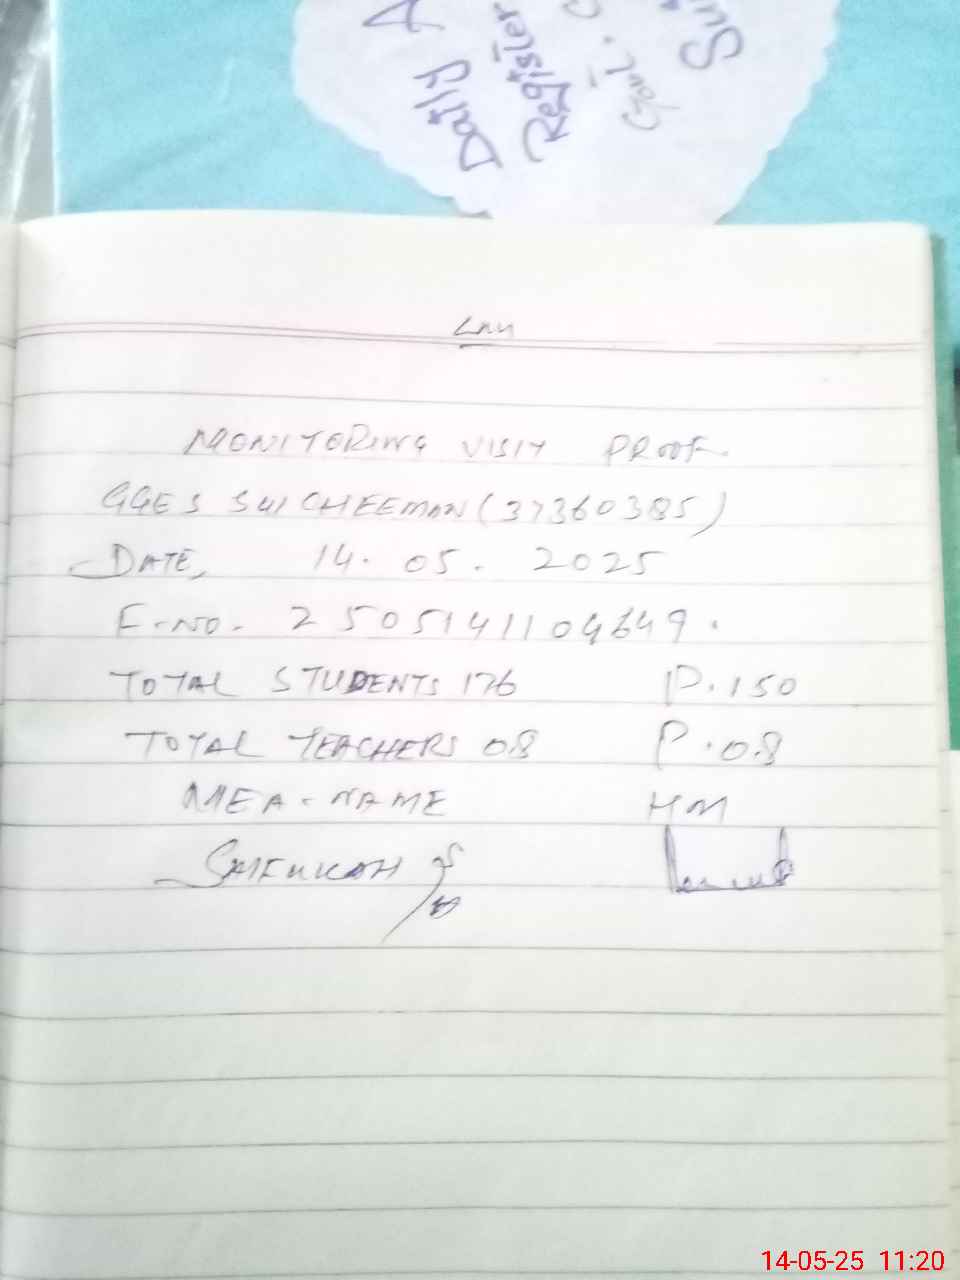 Daily A
Register
Govt. G
Sui
MONITORING VISIT PROOF.
GGES SUI CHEEMAN (37360385)
DATE, 14. 05. 2025
F-NO. 2505141104649.
TOTAL STUDENTS 176 P. 150
TOTAL TEACHERS 08 P. 08
MEA - NAME HM
14-05-25 11:20